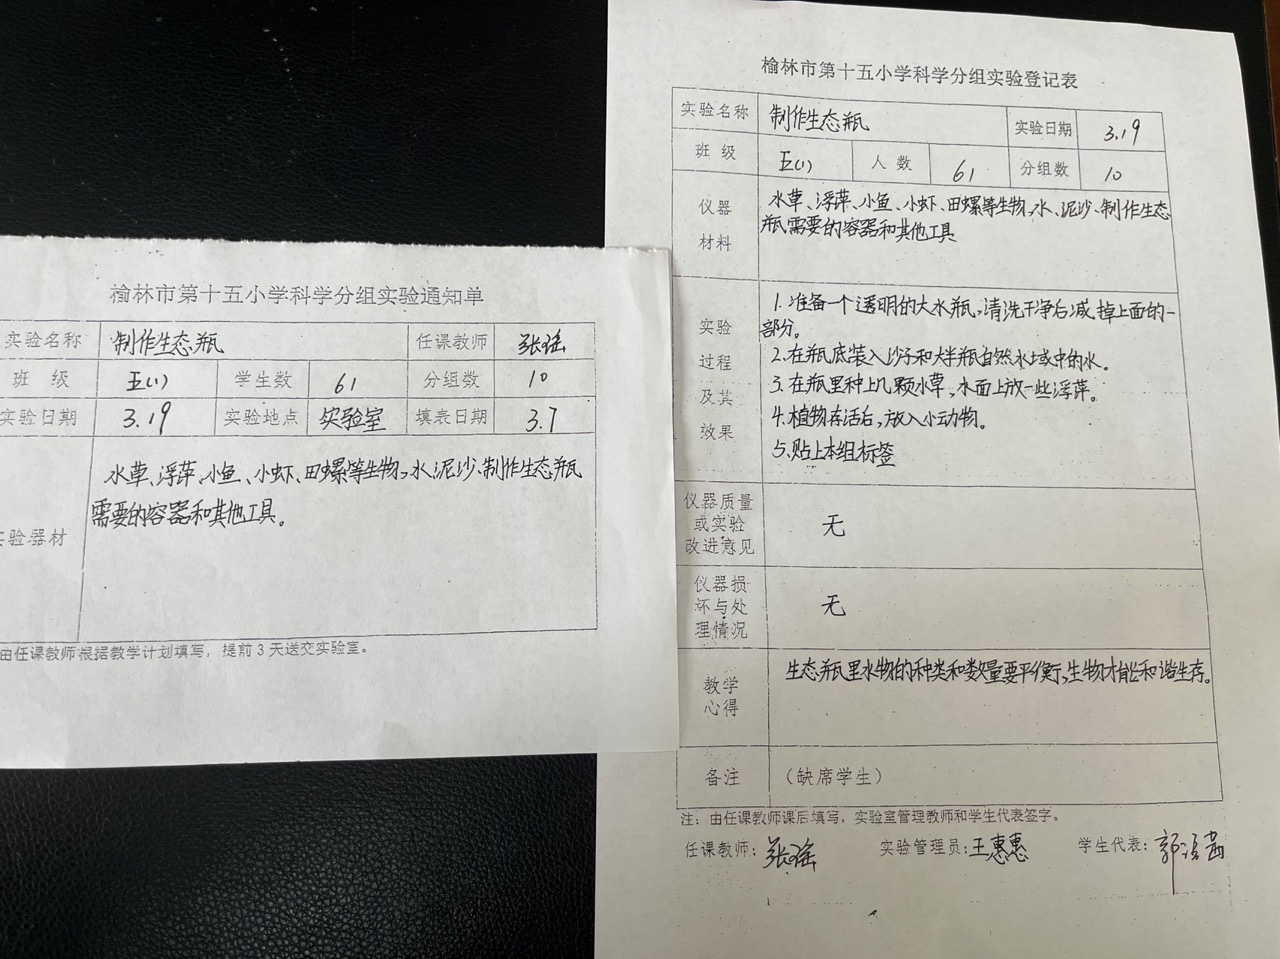 榆林市第十五小学科学分组实验通知单
实验名称 制作生态瓶 任课教师 张瑶
班 级 五(1) 学生数 61 分组数 10
实验日期 3.19 实验地点 实验室 填表日期 3.7
实验器材
水草、浮萍、小鱼、小虾、田螺等生物,水、泥沙、制作生态瓶
需要的容器和其他工具。
由任课教师根据教学计划填写，提前3天送交实验室。
榆林市第十五小学科学分组实验登记表
实验名称 制作生态瓶 实验日期 3.19
班 级 五(1) 人 数 61 分组数 10
仪器
材料
水草、浮萍、小鱼、小虾、田螺等生物,水、泥沙、制作生态
瓶需要的容器和其他工具
实验
过程
及其
效果
1.准备一个透明的大水瓶,清洗干净后减掉上面的一
部分。
2.在瓶底装入沙子和大半瓶自然水域中的水。
3.在瓶里种上几颗水草,水面上放一些浮萍。
4.植物存活后,放入小动物。
5.贴上本组标签
仪器质量
或实验
改进意见
无
仪器损
坏与处
理情况
无
教学
心得
生态瓶里水物的种类和数量要平衡,生物才能和谐生存。
备注 （缺席学生）
注：由任课教师课后填写，实验室管理教师和学生代表签字。
任课教师：张瑶 实验管理员：王惠惠 学生代表：郭语茜